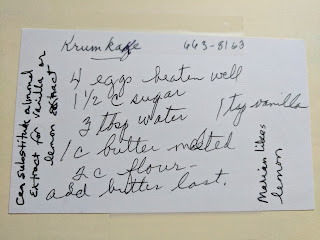 Krumkake 443-8163
4 eggs beaten well
1 1/2 c sugar
3 tbsp water
1 tsp vanilla
1 c butter melted
2 c flour -
add butter last.
Can substitute almond
extract for vanilla or
lemon extract
Marian likes
lemon